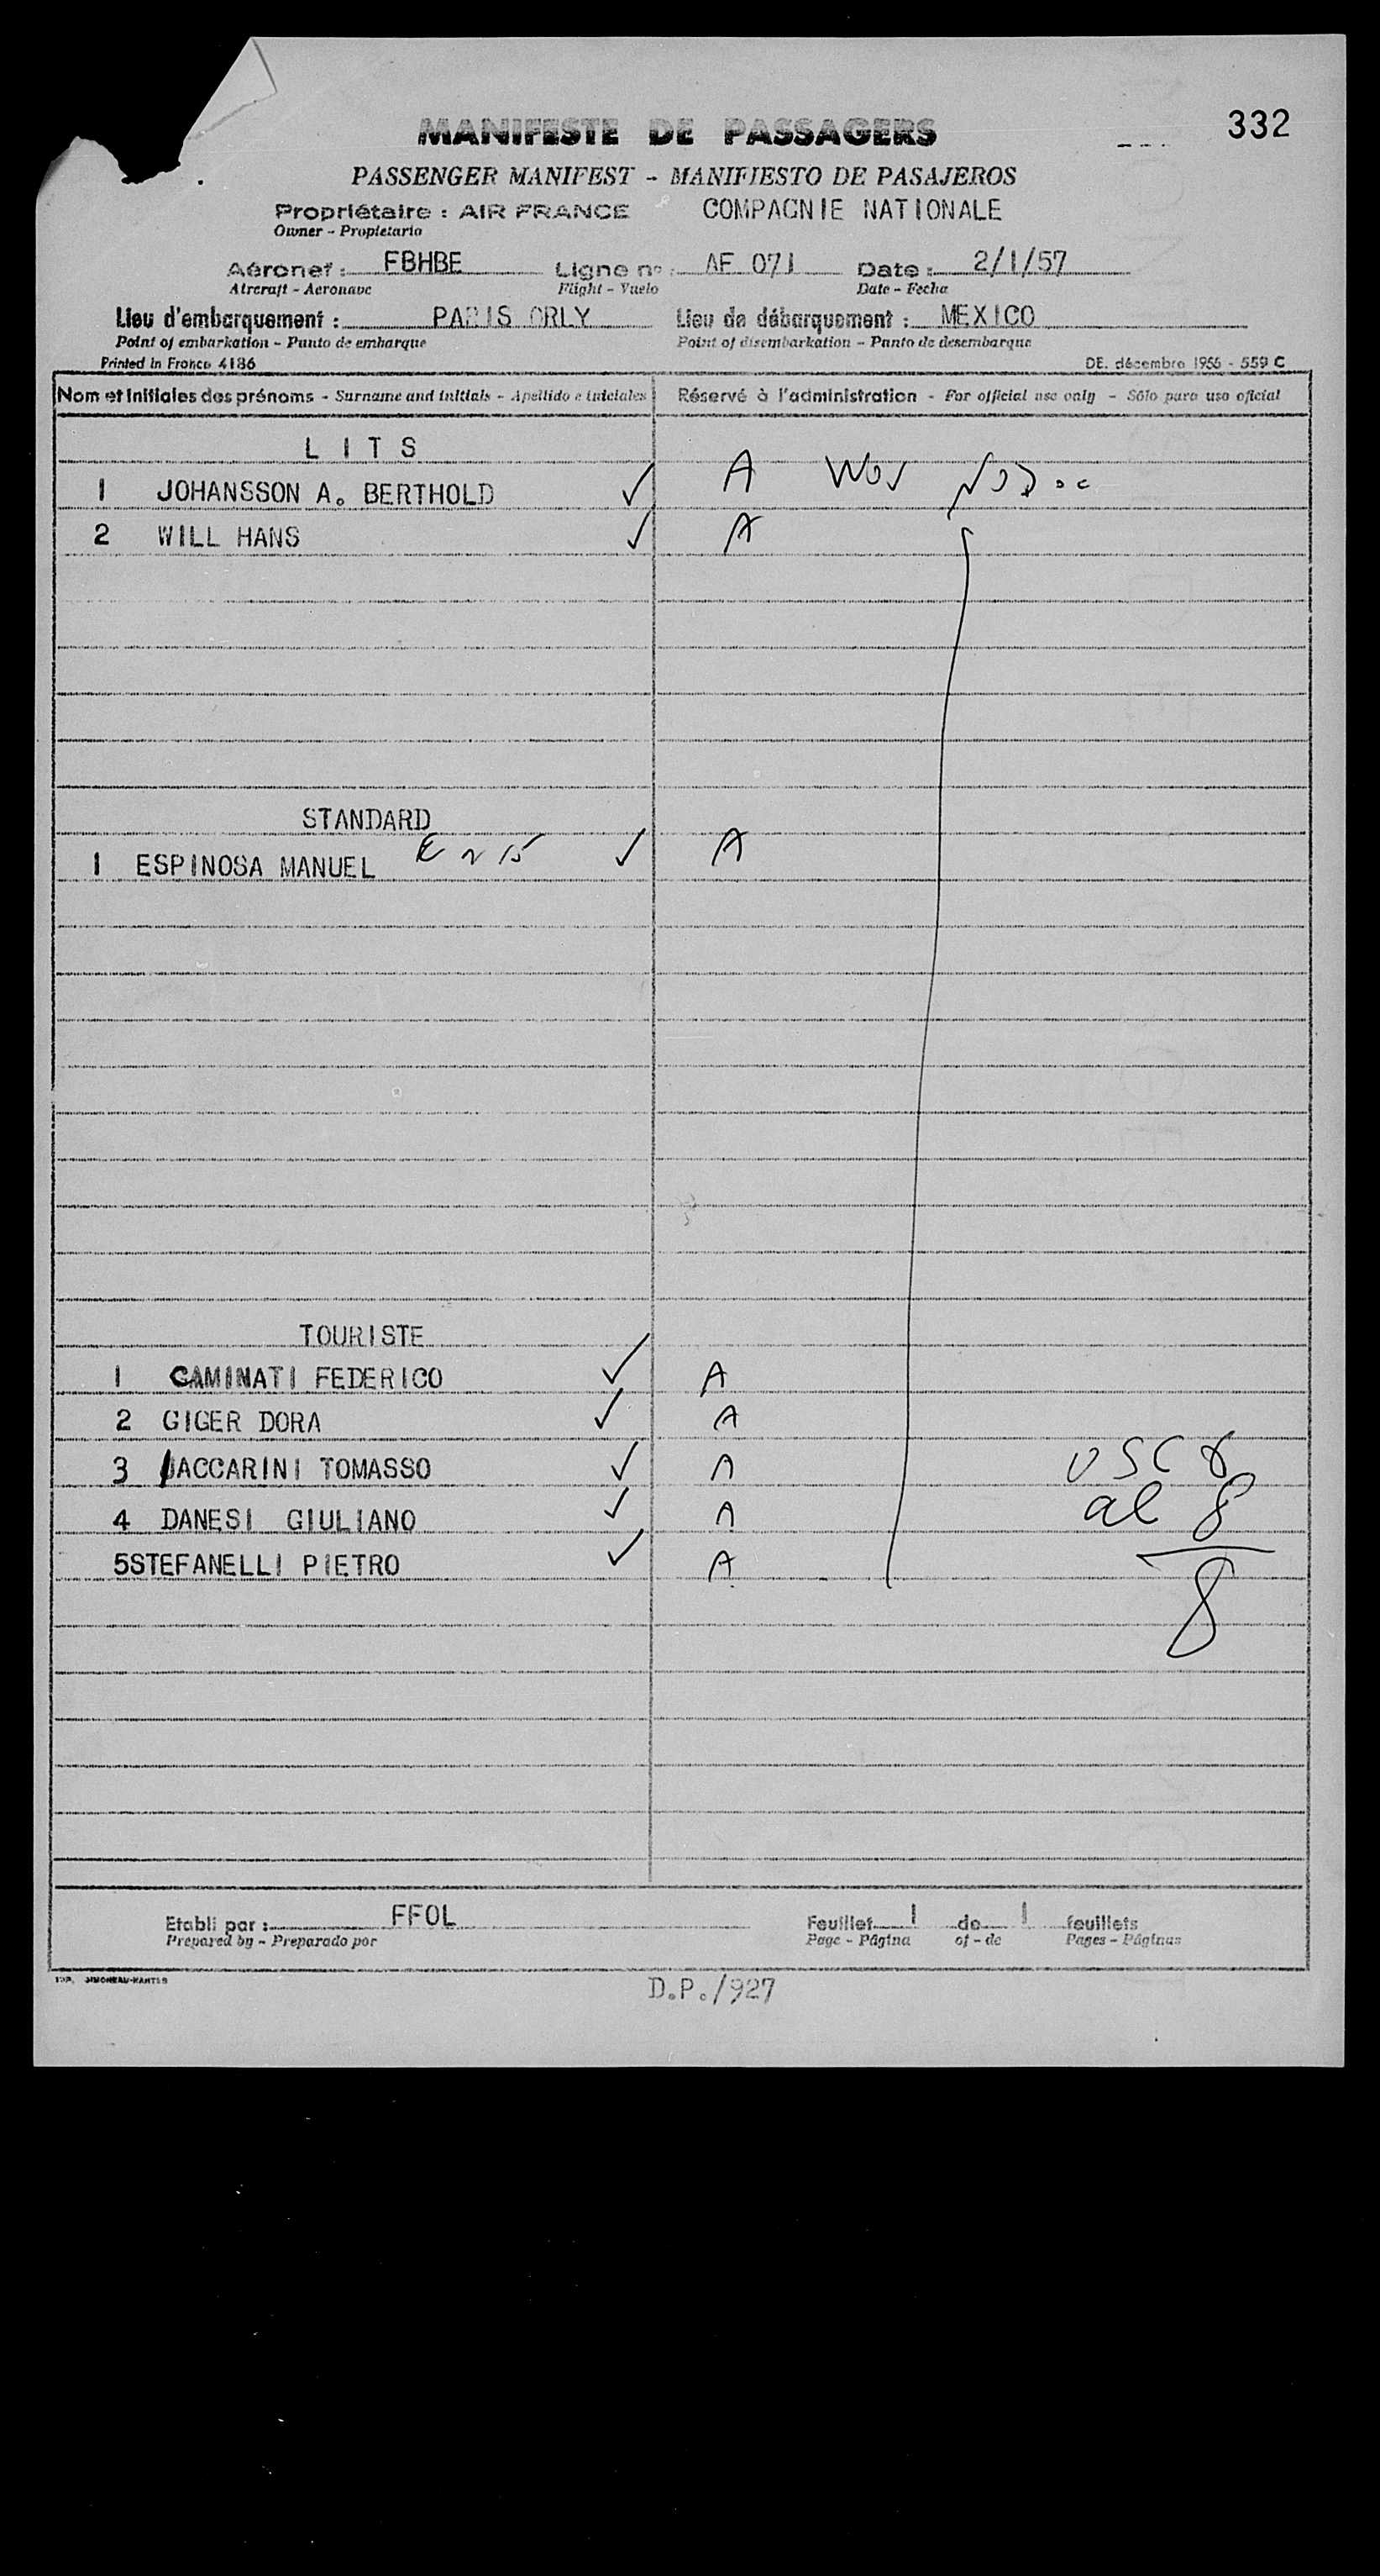 332
MANIFESTE DE PASSAGERS
PASSENGER MANIFEST - MANIFIESTO DE PASAJEROS
Propriétaire : AIR FRANCE COMPAGNIE NATIONALE
Owner - Propietario
Aéronef : FBHBE Ligne nº : AF 071 Date : 2/1/57
Aircraft - Aeronave Flight - Vuelo Date - Fecha
Lieu d'embarquement : PARIS ORLY Lieu de débarquement : MEXICO
Point of embarkation - Punto de embarque Point of disembarkation - Punto de desembarque
Printed in France 4186 DE. décembre 1956 - 559 C
Nom et Initiales des prénoms - Surname and initials - Apellido e iniciales Réservé à l'administration - For official use only - Sólo para uso oficial
L I T S
1 JOHANSSON A. BERTHOLD A
2 WILL HANS A
STANDARD
1 ESPINOSA MANUEL A
TOURISTE
1 CAMINATI FEDERICO A
2 GIGER DORA A
3 JACCARINI TOMASSO A
4 DANESI GIULIANO A al 8
5STEFANELLI PIETRO A
8
Etabli par : FFOL Feuillet 1 de 1 feuillets
Prepared by - Preparado por Page - Página of - de Pages - Páginas
IMP. SIMONEAU-NANTES
D.P./927